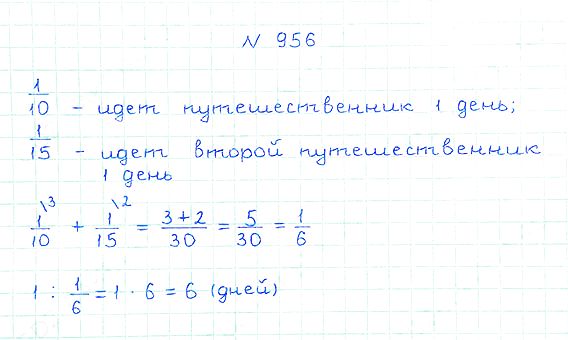 N 956
1/10 - идет путешественник 1 день;
1/15 - идет второй путешественник
1 день
1\3/10 + 1\2/15 = 3+2/30 = 5/30 = 1/6
1 : 1/6 = 1 · 6 = 6 (дней)